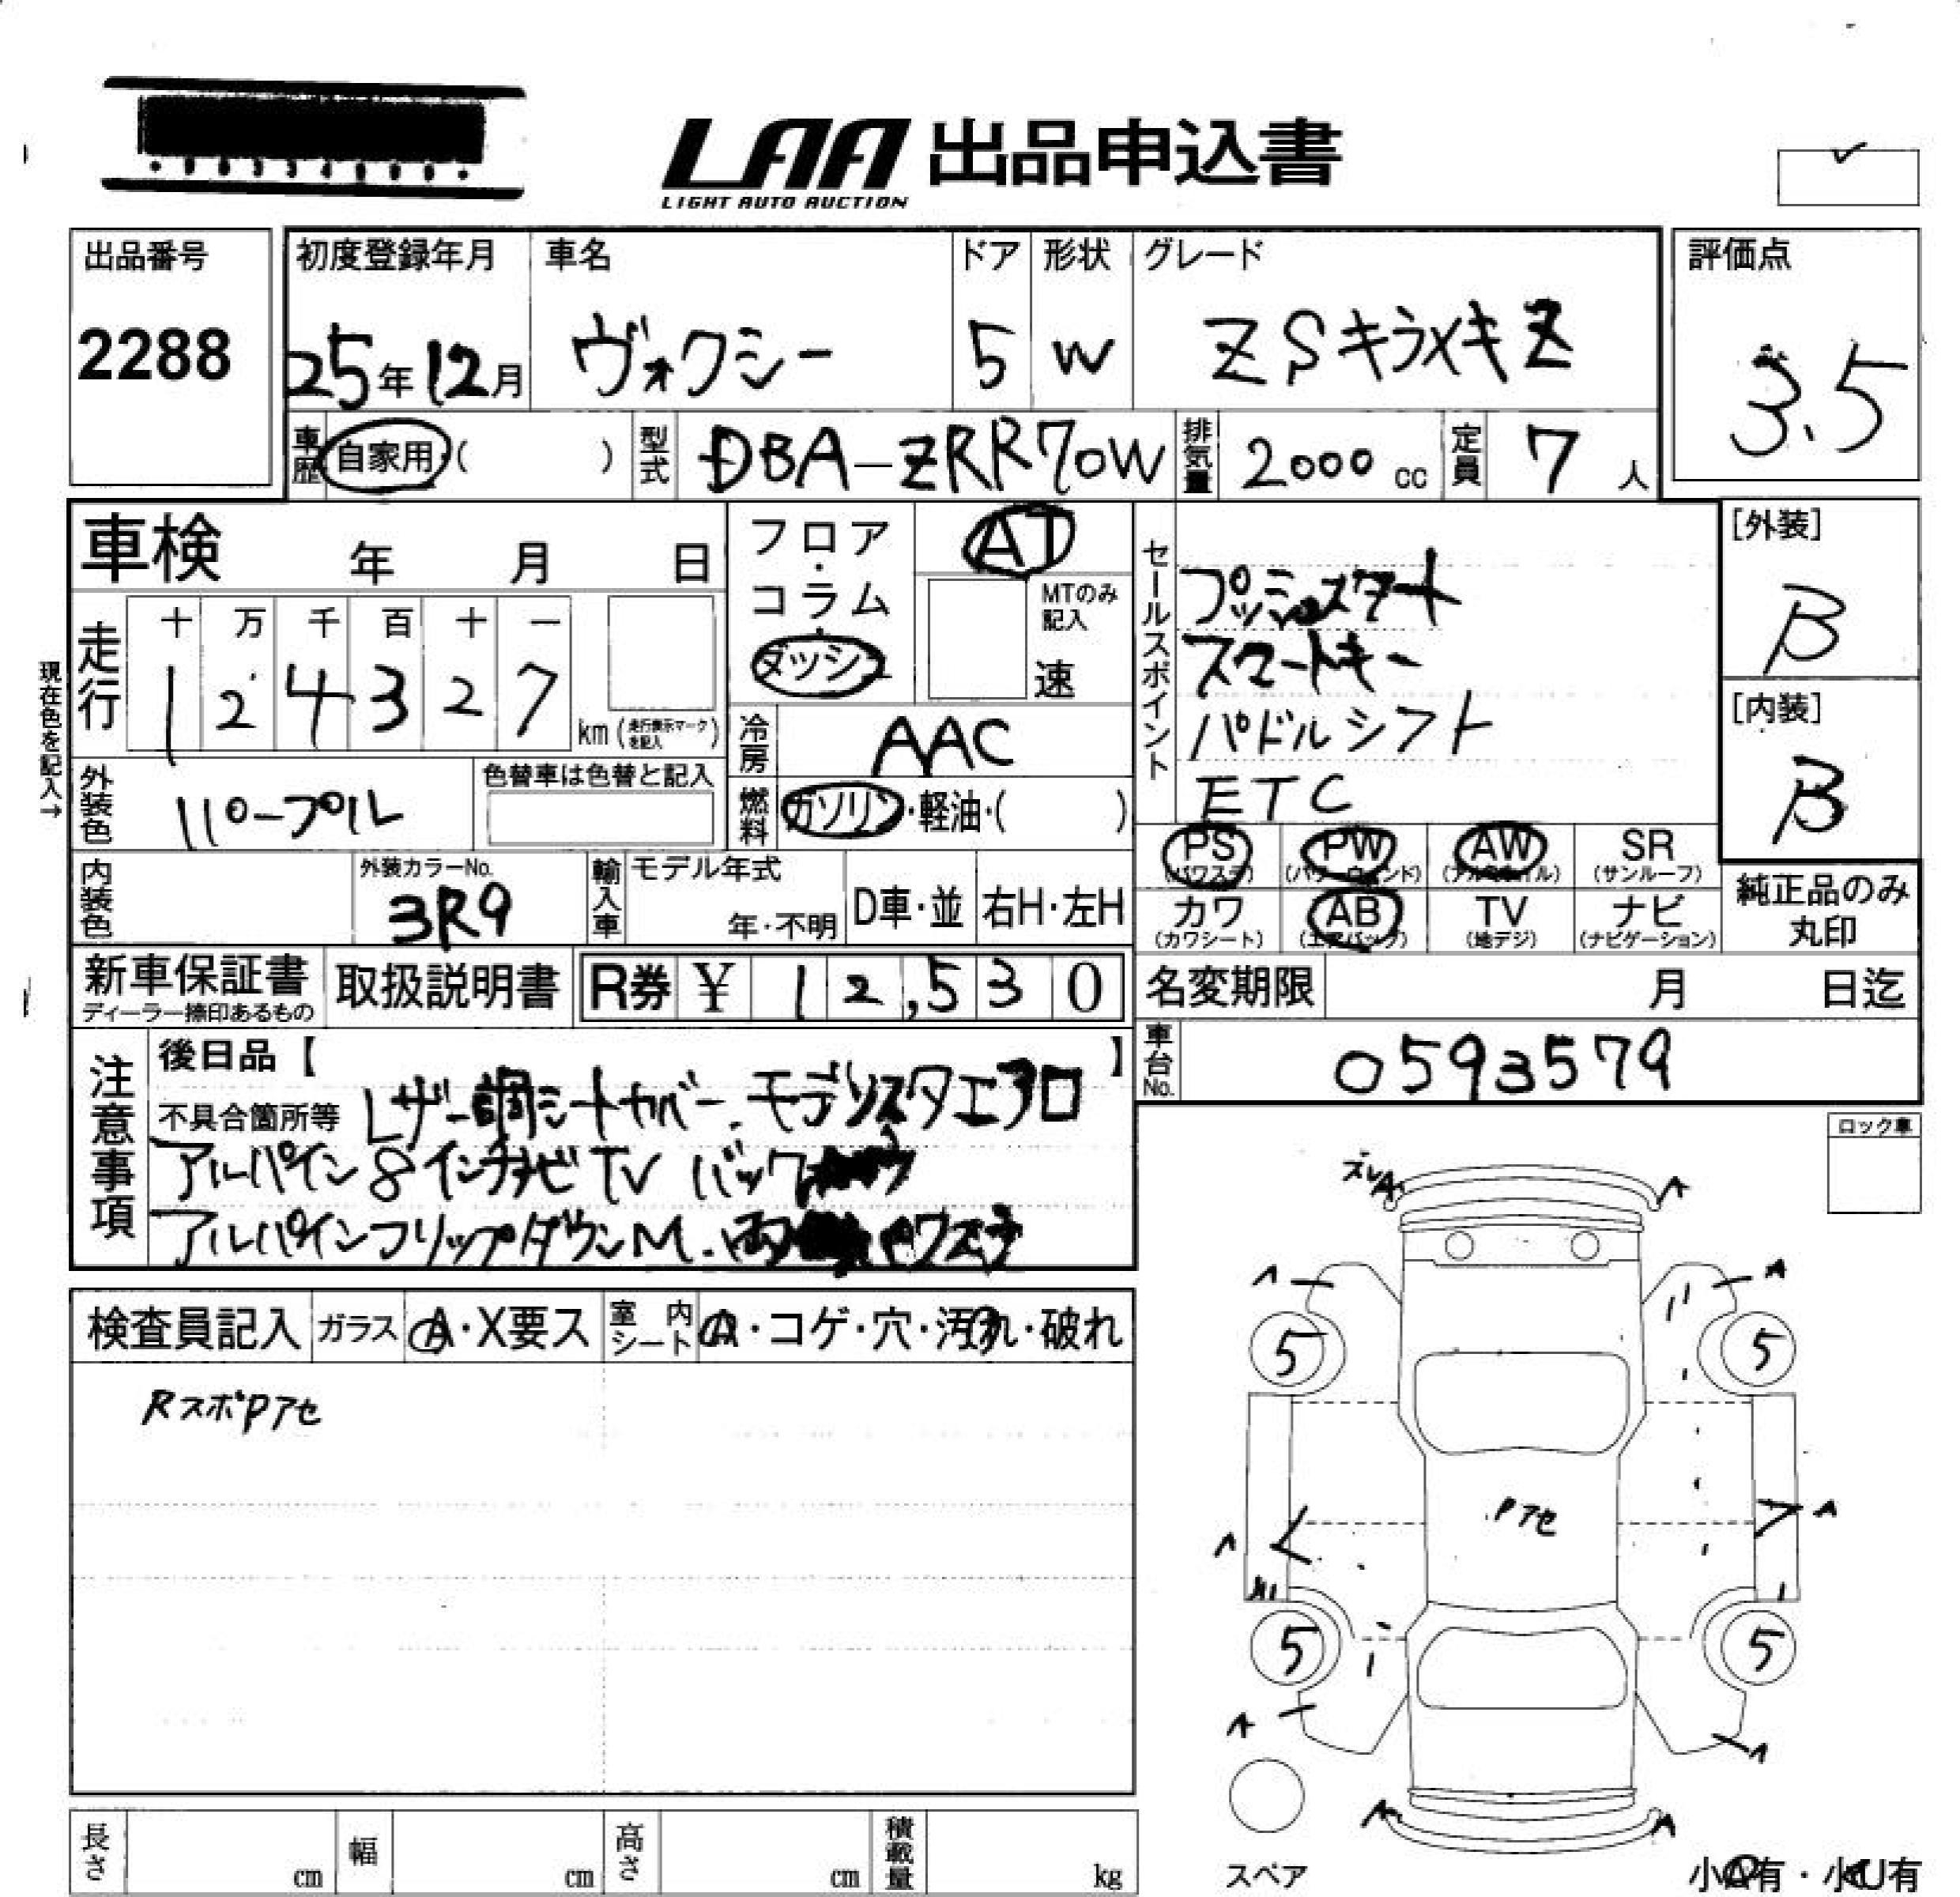 LAA 出品申込書
LIGHT AUTO AUCTION
出品番号
2288
初度登録年月
25年12月
車名
ヴォクシー
ドア
5
形状
W
グレード
ZSキラメキZ
評価点
3.5
車歴
自家用・( )
型式
DBA-ZRR70W
排気量
2000 cc
定員
7 人
車検 年 月 日
フロア・コラム・ダッシュ
AT
MTのみ記入
速
セールスポイント
プッシュスタート
スマートキー
パドルシフト
ETC
[外装]
B
[内装]
B
現在色を記入→
走行
十 万 千 百 十 一
1 2 4 3 2 7
km (走行表示マークを記入)
冷房
AAC
外装色
パープル
色替車は色替と記入
燃料
ガソリン・軽油・( )
PS (パワステ)
PW (パワーウィンド)
AW (アルミホイル)
SR (サンルーフ)
カワ (カワシート)
AB (エアバック)
TV (地デジ)
ナビ (ナビゲーション)
純正品のみ丸印
内装色
外装カラーNo.
3R9
輸入車
モデル年式
年・不明
D車・並
右H・左H
新車保証書
ディーラー捺印あるもの
取扱説明書
R券 ¥ 12,530
名変期限 月 日迄
車台No.
0593579
注意事項
後日品【 】
不具合箇所等 レザー調シートカバー.モデリスタエアロ
アルパイン8インチナビTV バック
アルパインフリップダウンM.両
ロック車
検査員記入
ガラス
A・X要ス
室内シート
A・コゲ・穴・汚れ・破れ
RスポPアセ
ズレA A
A A
5 5
Pアセ
A A
5 5
A A
A A
スペア
長さ cm
幅 cm
高さ cm
積載量 kg
小A有・小U有